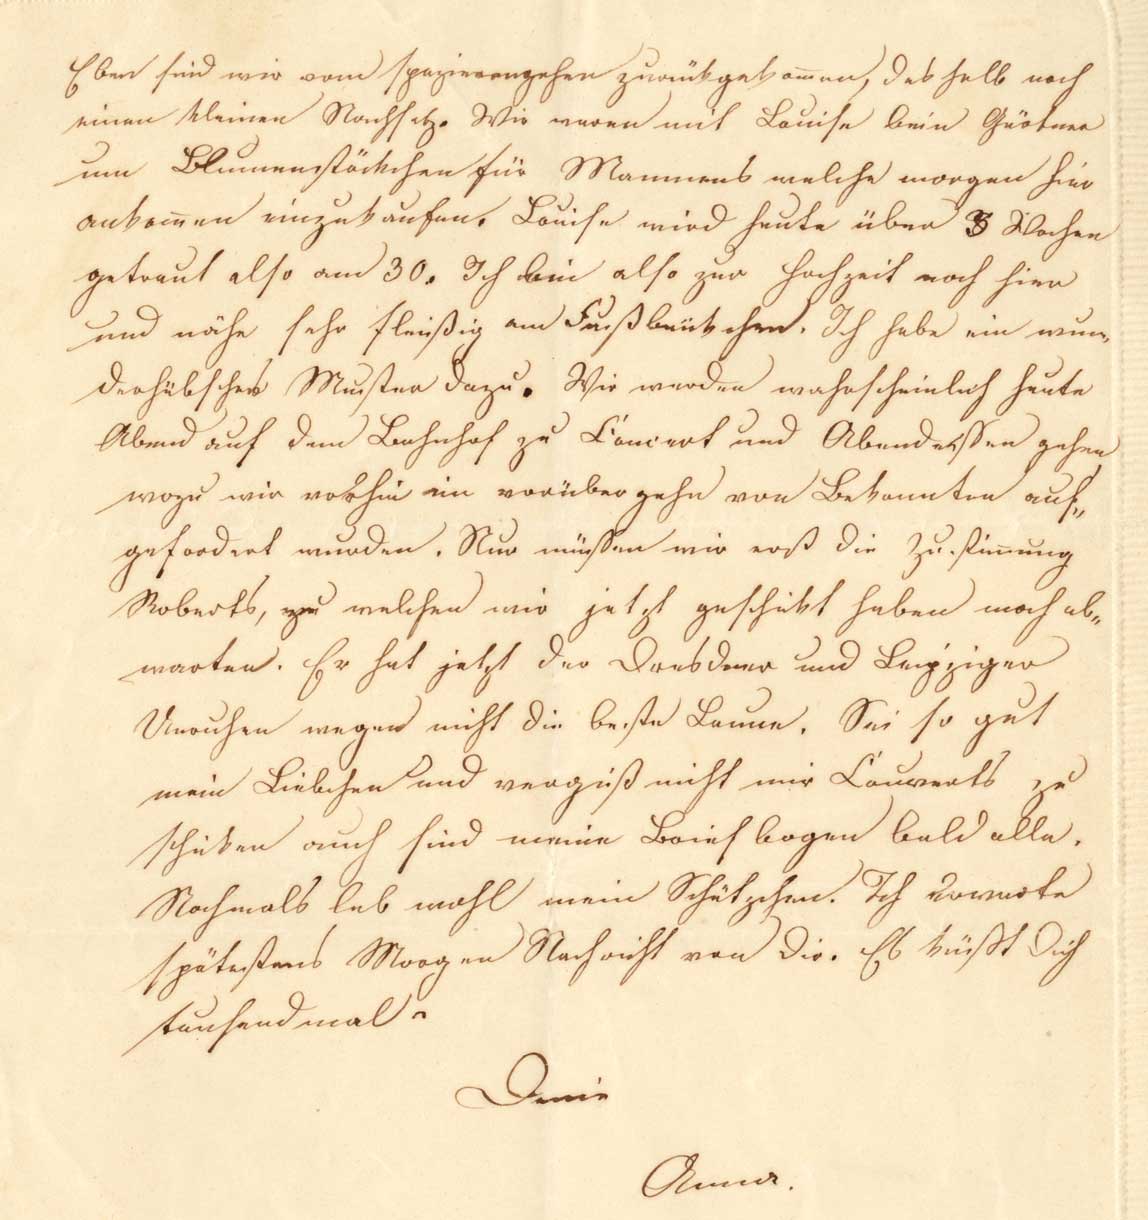 Eben sind wir vom spazierengehen zurückgekommen, deshalb noch
einen kleinen Nachsatz. Wir waren mit Louise beim Gärtner
um Blumenstöckchen für Mammens welche morgen hier
ankommen einzukaufen. Louise wird heute über 3 Wochen
getraut also am 30. Ich bin also zur Hochzeit noch hier
und nähe sehr fleißig am Fußbänkchen. Ich habe ein wun-
derhübsches Muster dazu. Wir werden wahrscheinlich heute
Abend auf dem Bahnhof zu Concert und Abendessen gehen
wozu wir vorhin im vorübergehn von Bekannten auf-
gefordert wurden. Nur müssen wir erst die Zustimmung
Roberts, zu welchen wir jetzt geschikt haben noch ab-
warten. Er hat jetzt der Dresdner und Leipziger
Unruhen wegen nicht die beste Laune. Sei so gut
mein Liebchen und vergiß nicht mir Couverts zu
schicken auch sind meine Briefbogen bald alle.
Nochmals leb wohl mein Schätzchen. Ich erwarte
spätestens Morgen Nachricht von Dir. Es küßt Dich
tausendmal
Deine
Anna.